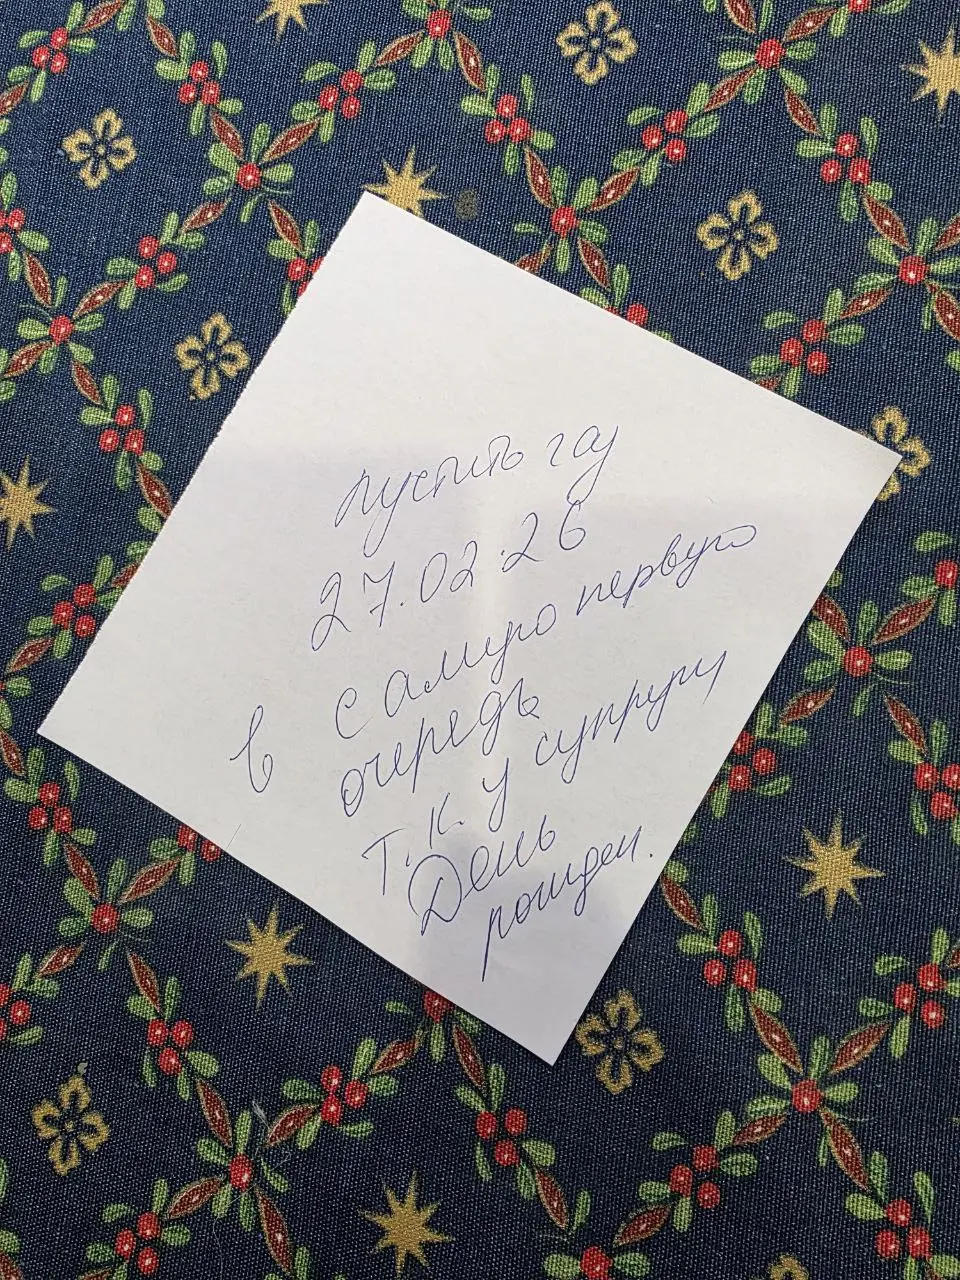 пустить газ
27.02.26
в самую первую
очередь
т.к. у супруги
День
рожден.